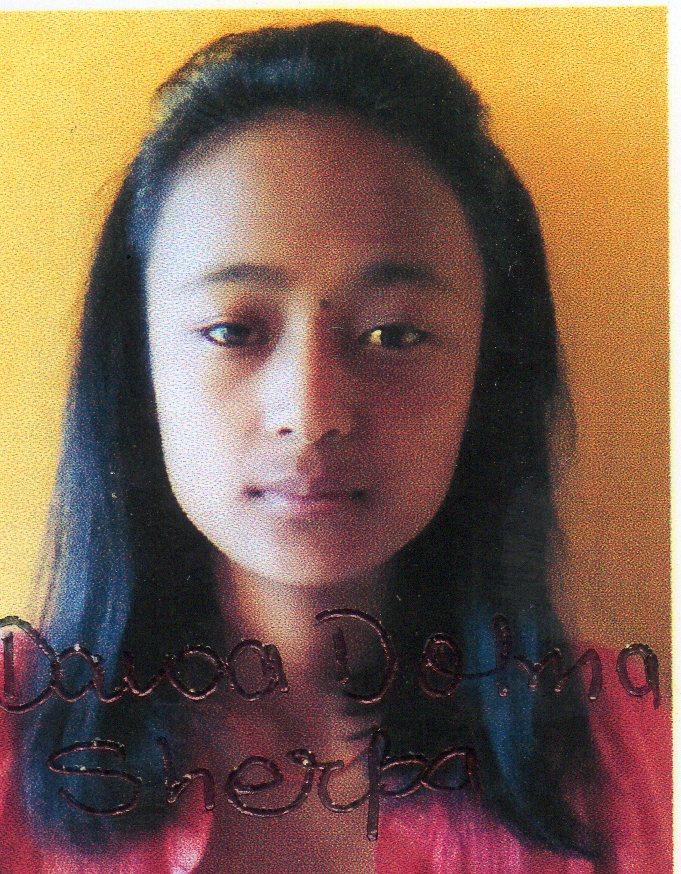 Dawa Dolma
Sherpa